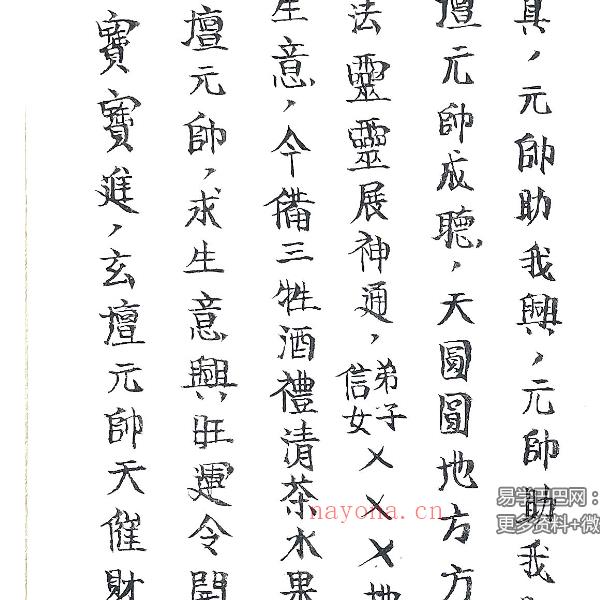 真，元帥助我興，元帥助我
壇元帥威聽，天圓圓地方方
法靈靈展神通，弟子信女×××地
生意，今備三牲酒禮清茶水果
壇元帥，求生意興旺運令開
寶寶進，玄壇元帥天催財
nayona.cn
易学巴巴网：
更多资料+微